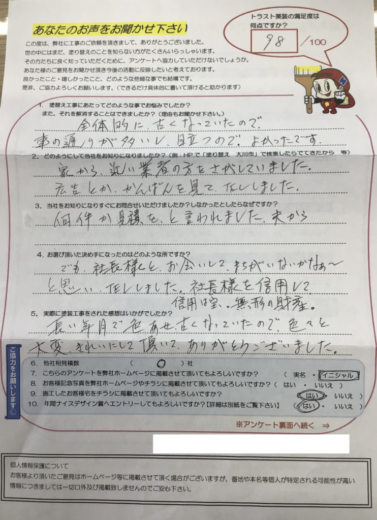 あなたのお声をお聞かせ下さい
トラスト美装の満足度は
何点ですか?
98 /100
この度は、弊社に工事のご依頼を頂きまして、ありがとうございました。
世の中にはまだ、塗り替えのことを知らない方がたくさんいらっしゃいます。
その方たちに良く知っていただくために、アンケートへ協力していただけないでしょうか。
あなた様のご意見をお聞かせ頂き今後の活動に反映したいと考えております。
良かったこと・嬉しかったことと、どのような些細な事でも結構です。
是非、ご協力よろしくお願いします。(できるだけ具体的に書いて頂けると助かります)
1. 塗替え工事にあたってどのような事でお悩みでしたか?
また、それを解消することはできましたか?(理由もお聞かせ下さい)
全体的に、古くなっていたので、
車の通りが多いし、目立つので、よかったです。
2. どのようにして当社をお知りになりましたか?
近い業者の方をさがしていました。
広告とか、かんばんを見て、
3. 当社をお知りになりすぐにお問合せいただけましたか?しなかったとしたらなぜですか?
何件か見積を、と言われました、夫から
4. お選び頂いた決め手になったのはどのような所ですか?
でも、社長様と、お会いして、まちがいないかなぁ〜
と思い、 社長様を信用して
信用は宝、無形の財産。
5. 実際に塗装工事をされた感想はいかがでしたか?
長い年月で色あせ古くなっていたので色々と
大変きれいにして頂いて、ありがとうございました。
ご協力をお願いします
6. 他社相見積数 ( 〇 )社
7. こちらのアンケートを弊社ホームページに掲載させて頂いてもよろしいですか? ( 実名 ・ イニシャル )
8. お客様記念写真を弊社ホームページやチラシに掲載させて頂いてもよろしいですか? ( はい ・ いいえ )
9. 施工したお客様宅をチラシに掲載させて頂いてもよろしいですか? ( はい ・ いいえ )
10. 年間ナイスデザイン賞へエントリーしてもよろしいですか?【詳細は別紙をご覧下さい】 ( はい ・ いいえ )
※アンケート裏面へ続く ⇒
個人情報保護について
お客様より頂いたご意見はホームページ等に掲載させて頂く場合がございますが、番地や本名等個人が特定される可能性が高い
情報につきましては一切口外及び掲載致しませんのでご安心下さい。